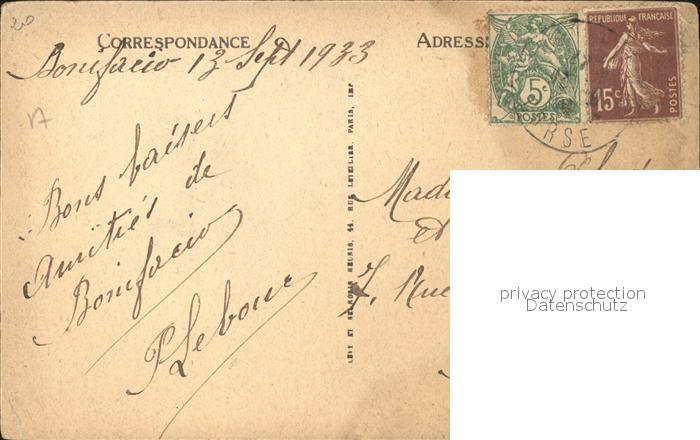 20
CORRESPONDANCE
ADRESS
Bonifacio 13 Sept 1933
RÉPUBLIQUE FRANÇAISE
5c
POSTES
15c
POSTES
RSE
Bons baisers
Amitiés de
Bonifacio
P Lebour
LÉVY ET NEURDEIN RÉUNIS, 44, RUE LETELLIER, PARIS, IMP
Mada
et
7, Rue
privacy protection
Datenschutz